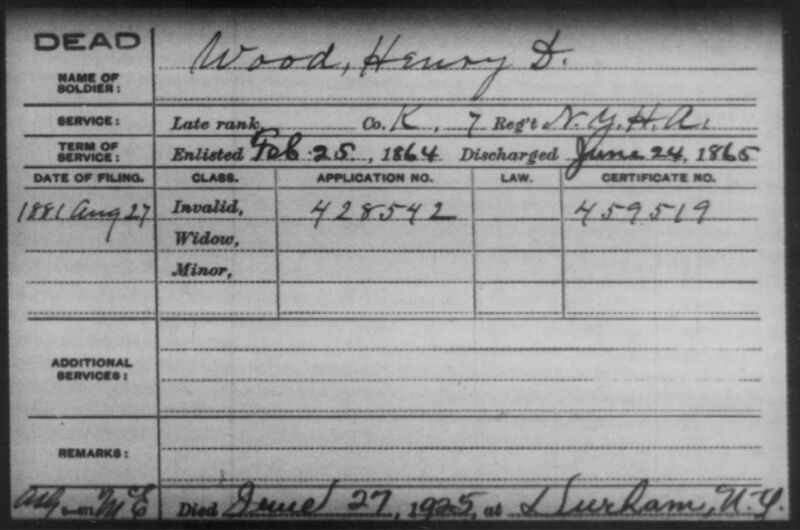 DEAD
Wood, Henry D.
NAME OF SOLDIER:
SERVICE: Late rank, Co. K, 7 Reg't N.Y.H.A.
TERM OF SERVICE: Enlisted Feb 25, 1864 Discharged June 24, 1865
DATE OF FILING. CLASS. APPLICATION NO. LAW. CERTIFICATE NO.
1881 Aug 27 Invalid, 428542 459519
Widow,
Minor,
ADDITIONAL SERVICES:
REMARKS:
Died June 27, 1925, at Durham, N.Y.